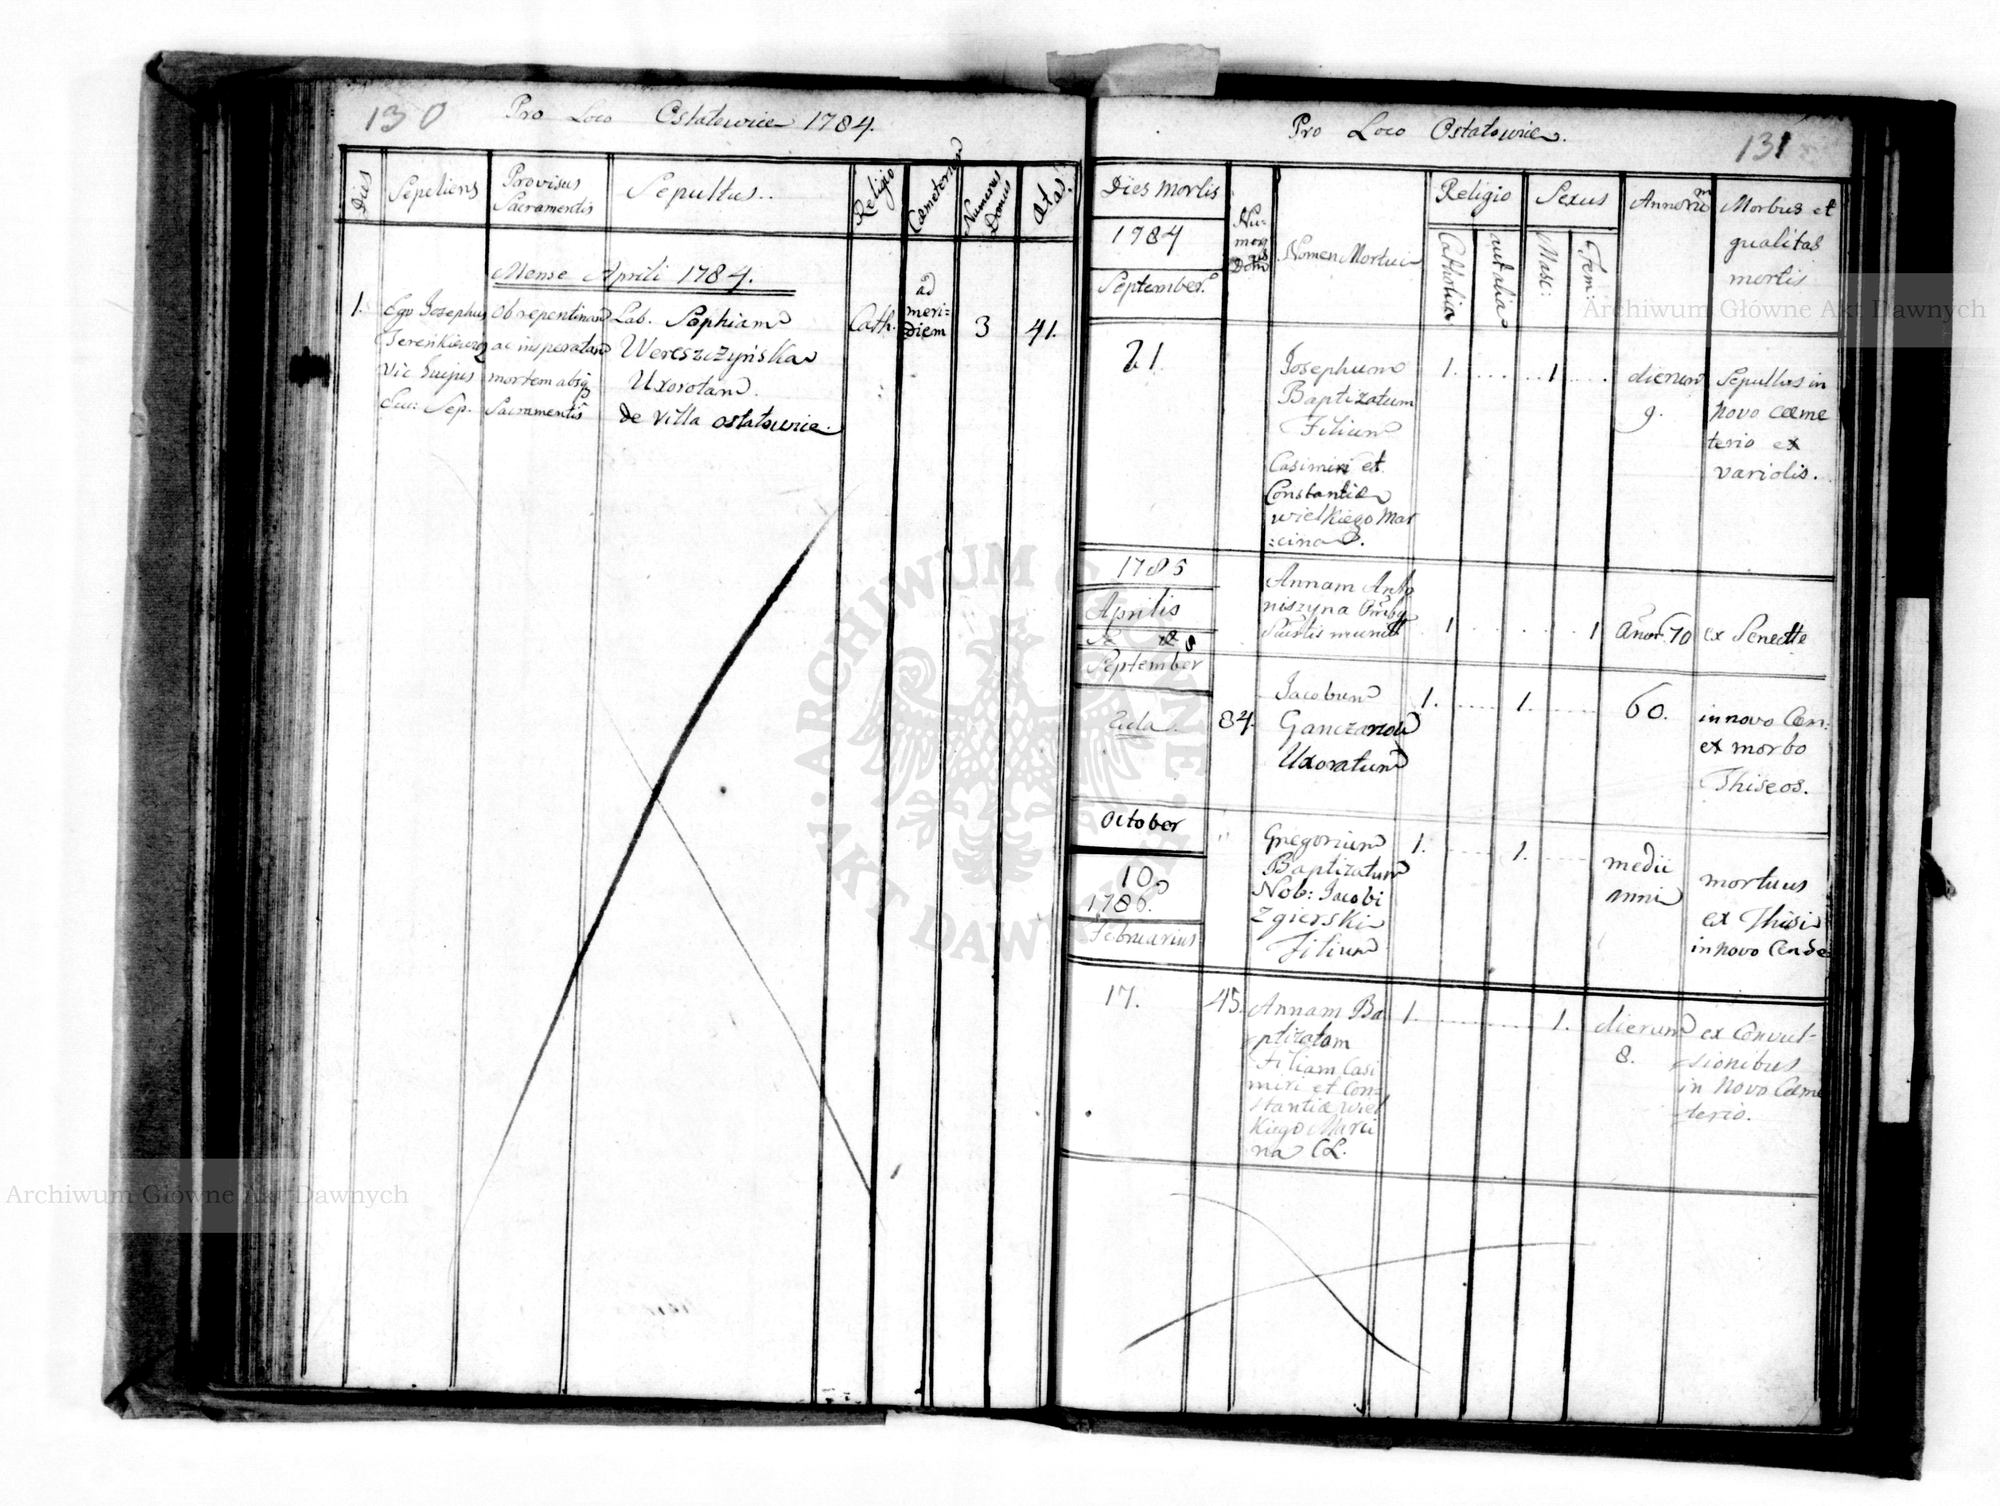 130
Pro Loco Ostałowice 1784.
Dies
Sepeliens
Provisus
Sacramentis
Sepultus.
Religio
Cæmeterium
Numerus
Domus
Ætas.
Mense Aprili 1784.
1.
Ego Josephus
vic: hujus
Ecc: Sep.
ob repentinam
ac insperatam
mortem absq
Sacramentis
Lab. Sophiam
Wereszczyńska
Uxorotam
de Villa ostałowice.
Cath.
ad
meri-
diem
3
41.
Pro Loco Ostałowice.
131
Dies Mortis
1784
September.
Nu-
mer
us
Dom
Nomen Mortui
Religio
Catholica
aut alia
Sexus
Masc:
Fem:
Annorum
Morbus et
qualitas
mortis
21.
Josephum
Baptizatum
Filium
Casimiri et
Constantiæ
wielkiego Mar
:cina
1.
1
dierum
9.
Sepultus in
novo cæme
terio ex
variolis.
1785
Aprilis
28
Annam Anto
niszyna
munit
1
1
70
ex Senectte
September
84.
Jacobum
Uxoratum
1.
1.
60.
in novo Cæm:
ex morbo
Thiseos.
October
10.
Gregorium
Baptizatum
Nob: Jacobi
Zgierski
Filium
1.
1.
medii
anni
mortuus
ex Thisi
in novo
1786.
Februarius
17.
45.
Annam Ba
ptizatam
Filiam Casi
miri et Con-
stantiæ wiel
kiego Marci
na CL.
1.
1.
dierum
8.
ex Convul-
sionibus
in Novo Cæme
terio.
Archiwum Główne Akt Dawnych
Archiwum Główne Akt Dawnych
ARCHIWUM GŁÓWNE · AKT DAWNYCH ·